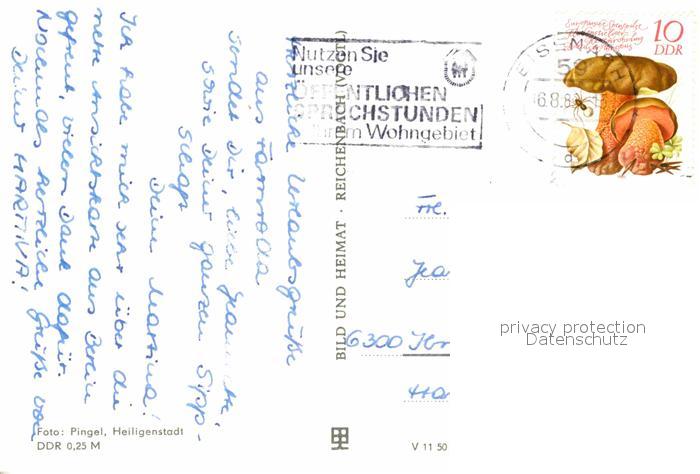 Herzliche Urlaubsgrüße
aus Tannroda
sendet Dir, liebe
sowie Deiner ganzen Sipp-
schaft
Deine Martina!
Ich habe mich sehr über die
nette Ansichtskarte aus Berlin
gefreut, vielen Dank dafür.
Nochmals herzliche Grüße von
Deiner MARTINA!
Foto: Pingel, Heiligenstadt
DDR 0,25 M
BILD UND HEIMAT · REICHENBACH (VOGTL)
V 11 50
Nutzen Sie
unsere
ÖFFENTLICHEN
SPRECHSTUNDEN
im Wohngebiet
EISENACH
59
10
DDR
Frl.
Jea
6300 Ilm
Ha
privacy protection
Datenschutz